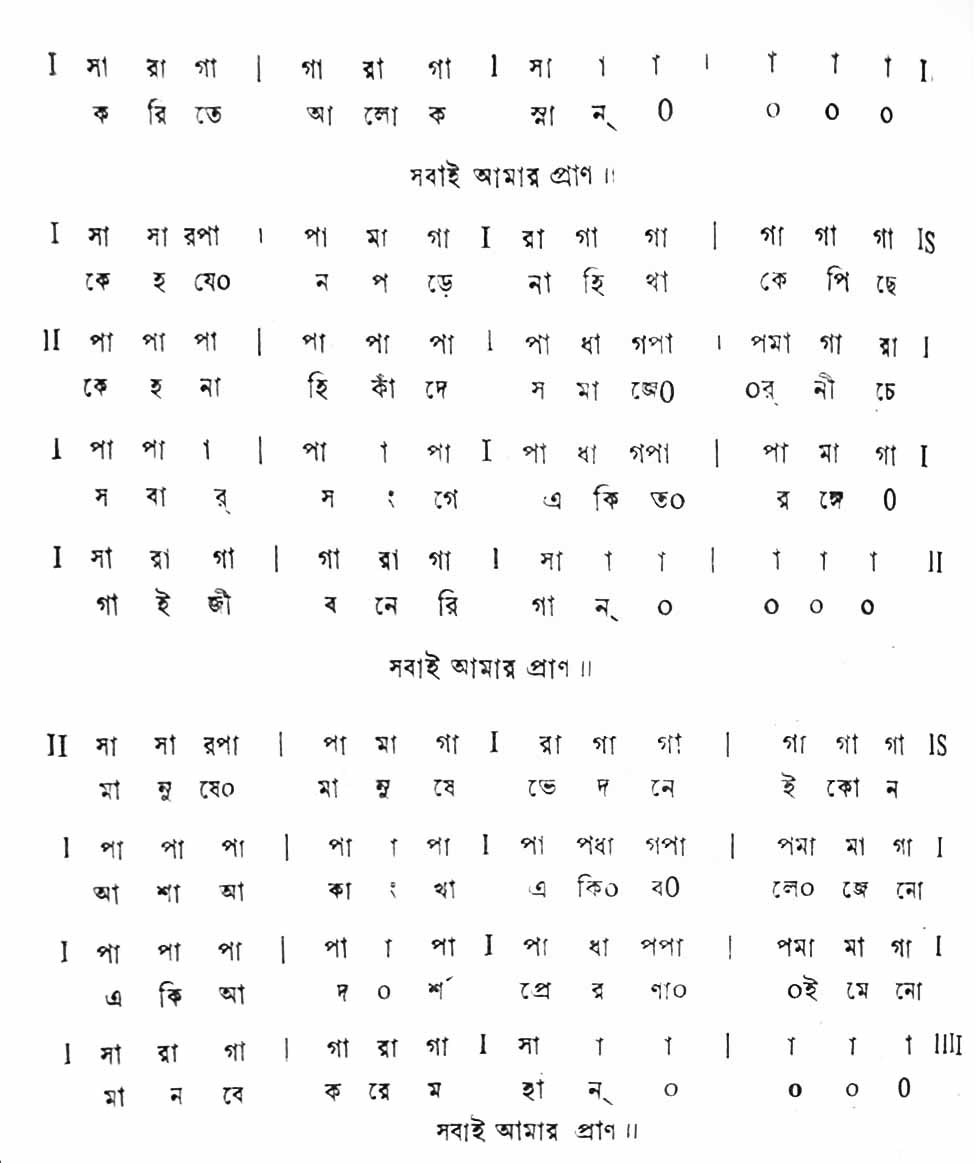 I সা রা গা | গা রা গা I সা া া । া া া I
ক রি তে আ লো ক স্না ন্ 0 ০ ০ ০
সবাই আমার প্রাণ॥
I সা সা রপা । পা মা গা I রা গা গা | গা গা গা IS
কে হ যে০ ন প ড়ে না হি থা কে পি ছে
II পা পা পা | পা পা পা I পা ধা গপা । পমা গা রা I
কে হ না হি কাঁ দে স মা জে0 ০র্ নী চে
I পা পা া | পা া পা I পা ধা গপা | পা মা গা I
স বা র্ স ং গে এ কি ত০ র ঙ্গে 0
I সা রা গা | গা রা গা I সা া া | া া া II
গা ই জী ব নে রি গা ন্ ০ ০ ০ ০
সবাই আমার প্রাণ॥
II সা সা রপা | পা মা গা I রা গা গা | গা গা গা IS
মা নু ষে০ মা নু ষে ভে দ নে ই কো ন
I পা পা পা | পা া পা I পা পধা গপা | পমা মা গা I
আ শা আ কা ং থা এ কি০ ব0 লে০ জে নো
I পা পা পা | পা া পা I পা ধা পপা | পমা মা গা I
এ কি আ দ ০ র্শ প্রে র ণা০ ০ই মে নো
I সা রা গা | গা রা গা I সা া া | া া া IIII
মা ন বে ক রে ম হা ন্ ০ ০ ০ 0
সবাই আমার প্রাণ॥